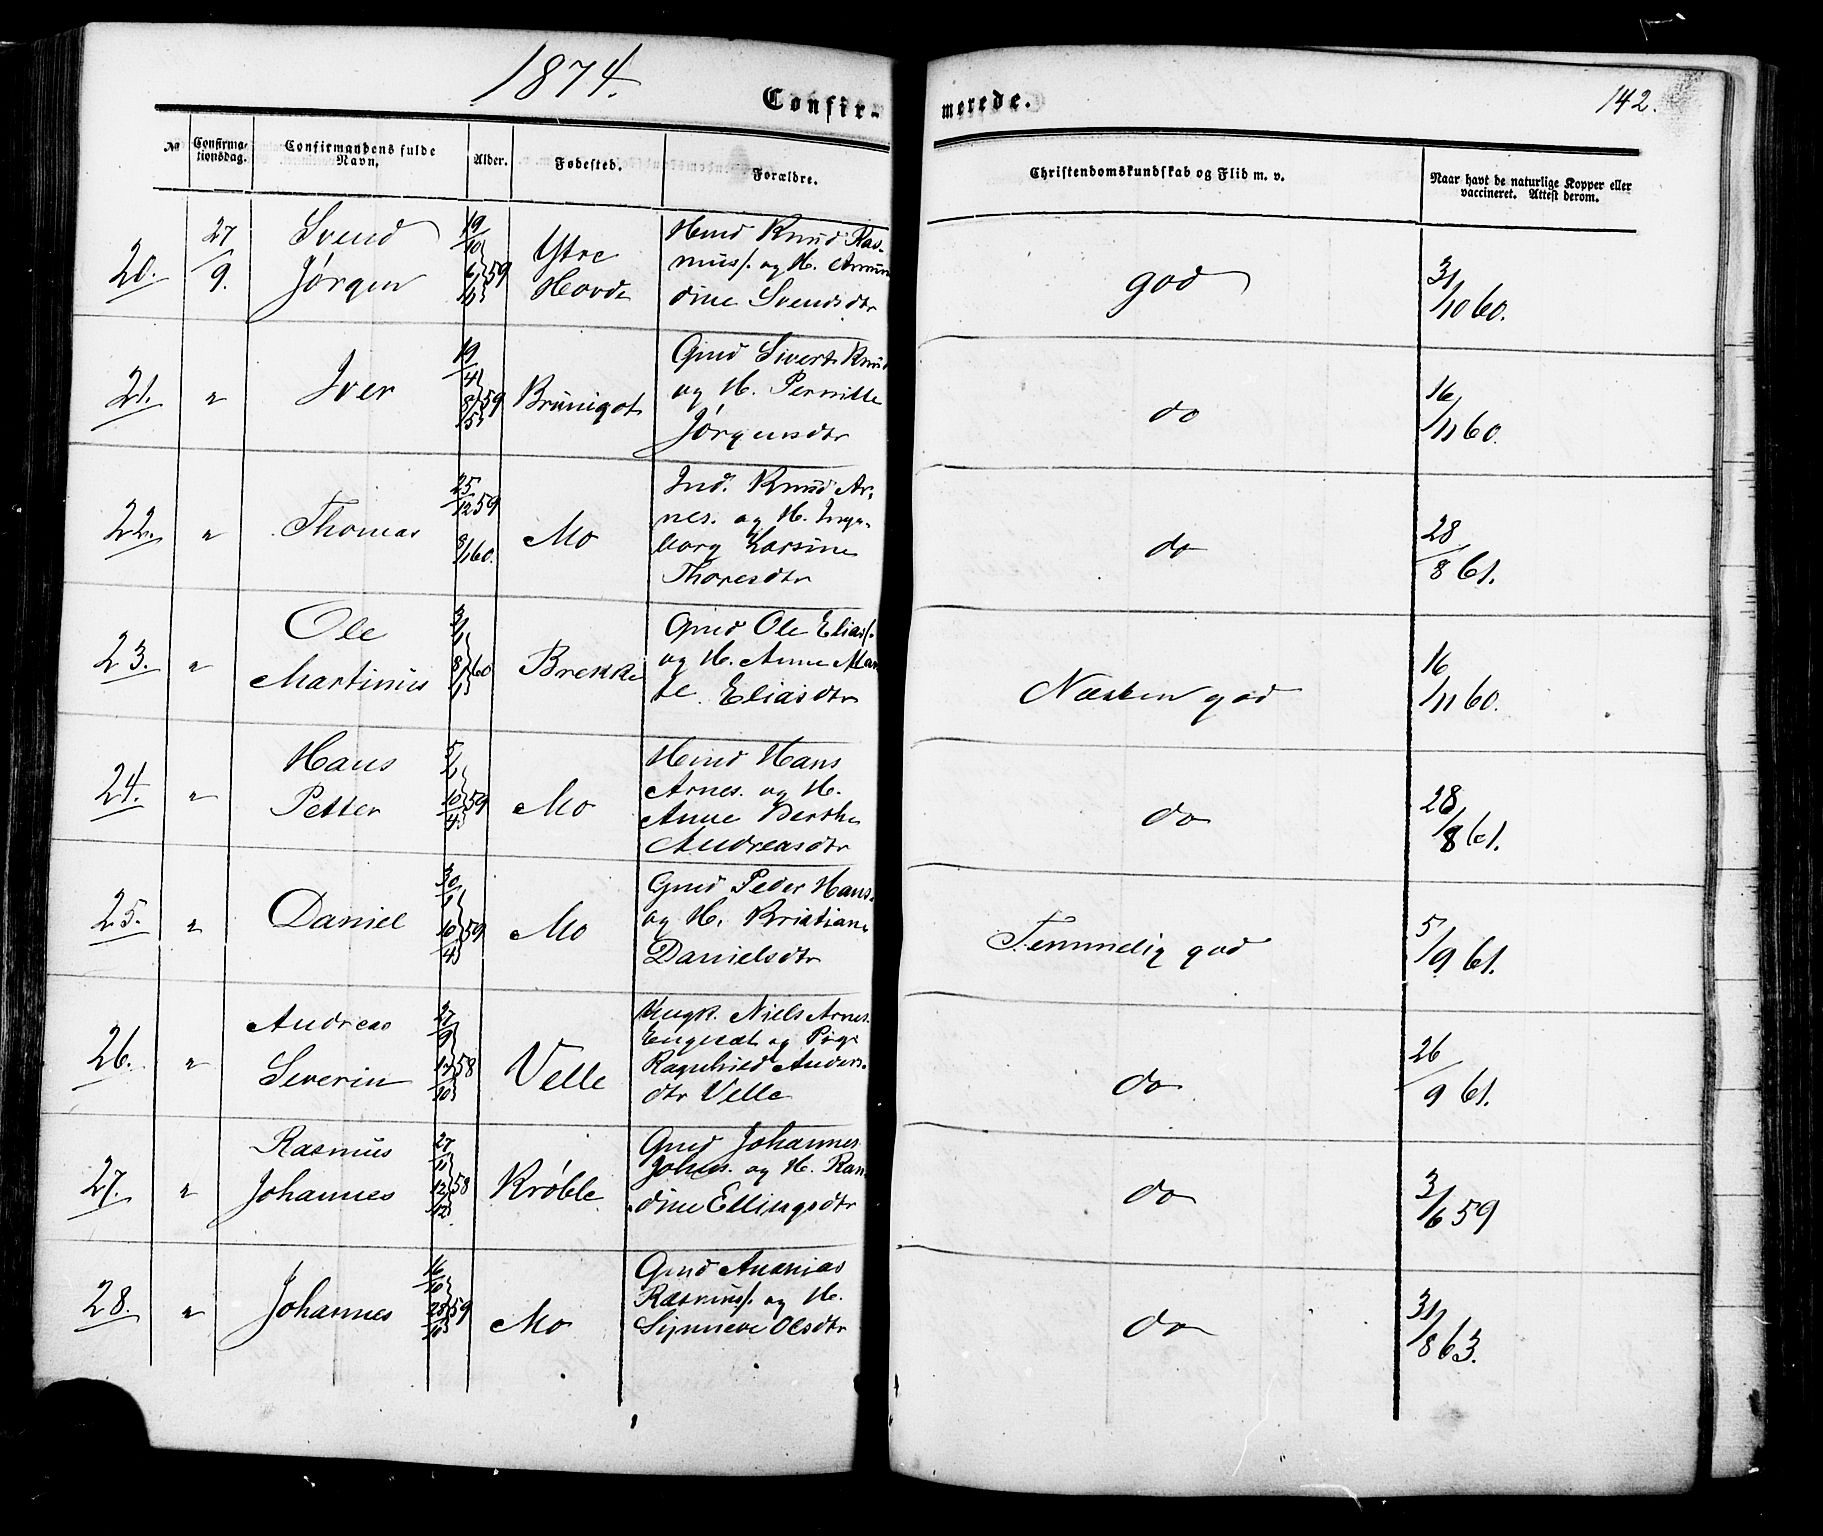 1874.
Confir-
merede.
142.
No
Confirma-
tionsdag.
Confirmandens fulde
Navn.
Alder.
Fødested.
Forældre.
Christendomskundskab og Flid m. v.
Naar havt de naturlige Kopper eller
vaccineret. Attest derom.
20.
27/9.
Svend
Jørgen
19/10
6/11 59
Ytre
Hovde
Hmd Knud Ras-
mus/. og H.
dine Svendsdtr
god
31/10 60.
21.
"
Iver
19/4
8/5 59
Brunigot
Gmd Sivert Knud
og H. Pernille
Jørgensdtr
do
16/11 60.
22.
"
Thomas
25/12 59
8/1 60.
Mo
Ind. Knud Ar-
nes. og H. Inge-
borg Larsine
Thoresdtr
do
28/8 61.
23.
"
Ole
Martinus
3/1
8/1 60
Brekke
Gmd Ole Elias/.
og H. Anne Mar
te Eliasdtr
Næsten god
16/11 60.
24.
"
Hans
Petter
5/1
10/4 59
Mo
Hmd Hans
Arnes. og H.
Anne Berthe
Andreasdtr
do
28/8 61.
25.
"
Daniel
30/1
10/4 59
Mo
Gmd Peder Hans.
og H. Kristiane
Danielsdtr
Temmelig god
5/9 61.
26.
"
Andreas
Severin
27/9
/10 58
Velle
Ungk. Niels Arnes.
Engeset og Pige
Ragnhild Anders-
dtr Velle
do
26/9 61.
27.
"
Rasmus
Johannes
27/11
12/12 58
Krøble
Gmd Johannes
Johns. og H. Ran
dine Ellingsdtr
do
3/6 59
28.
"
Johannes
16/10
28/10 59
Mo
Gmd Ananias
Rasmus/. og H.
Synneve Olsdtr
do
31/8 63.